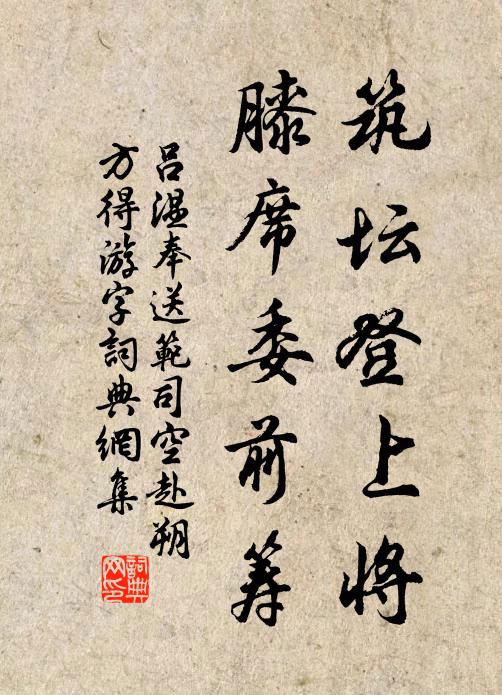 筑坛登上将
膝席委前筹
吕温奉送範司空赴朔
方得游字詞典網集
詞典
网印